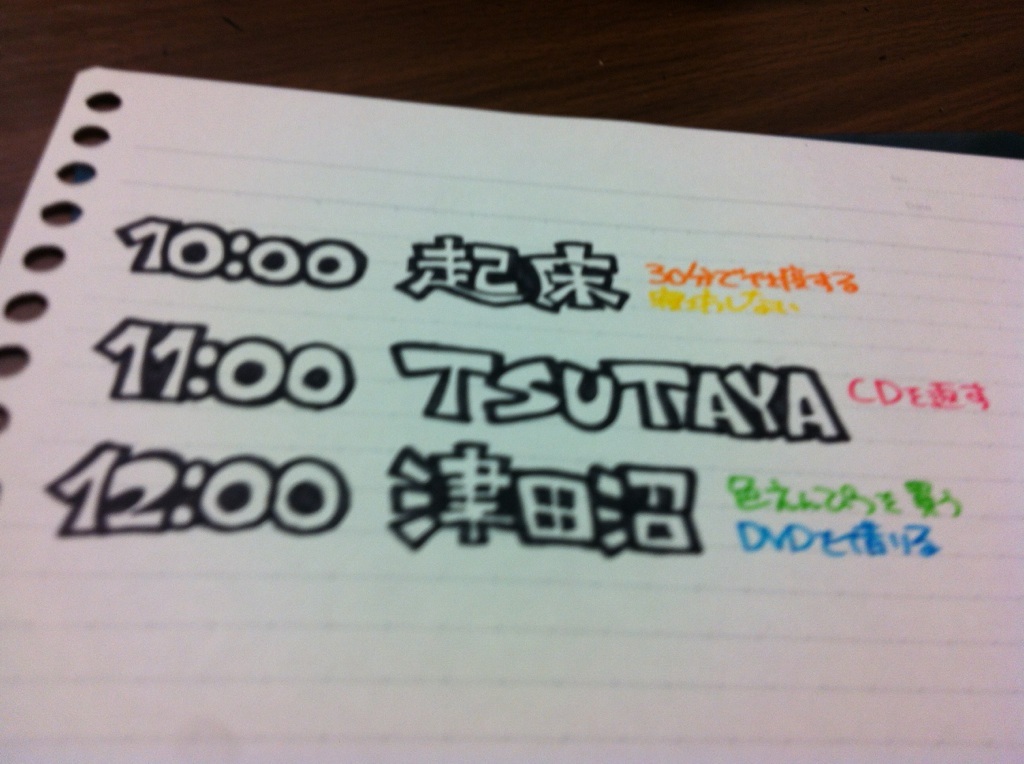 10:00 起床 30分で支度する
寝坊しない
11:00 TSUTAYA CDを返す
12:00 津田沼 色えんぴつを買う
DVDを借りる